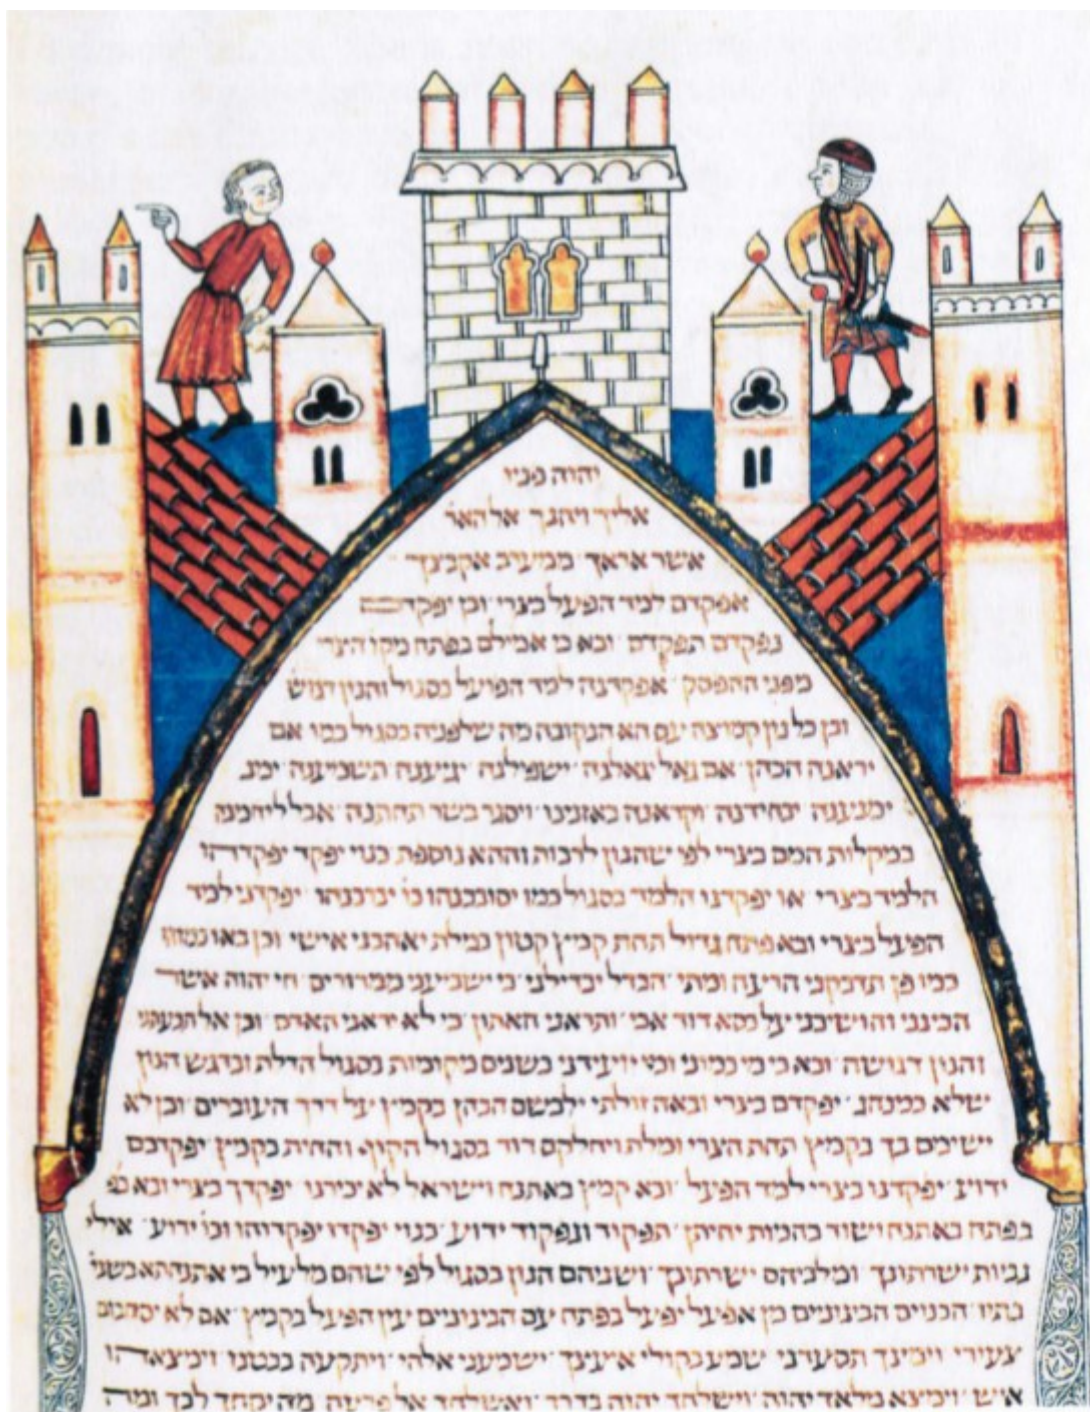 יהוה פניו
אליך ויחנך אל האר
אשר אראך ממערב אקבצך
אפקדם למד הפעל בצרי וכן יפקד
נפקדם תפקדם ובא כי אמילם בפתח מקום הצרי
מפני ההפסק אפקדנה למד הפועל בסגול והנון דגוש
וכן כל נון קמוצה עם הא הנקבה מה שלפניה בסגול כמו אם
יראנה הכהן אם גאל יגאלנה ישפילנה יגיענה תשמיענה
ימניענה יכחידנה וקראנה באזנינו ויסגר בשר תחתנה אבל ליחמנה
במקלות המם בצרי לפי שהנון לרבות וההא נוספת כנוי יפקד יפקדהו
הלמד בצרי או יפקדנו הלמד בסגול כמו יסובבנהו יברכנהו יפקדני למד
הפעל בצרי ובא פתח גדול תחת קמץ קטון במלת יאהבני אישי וכן באו כמוהו
כמו פן תדבקני הרעה ומתי הבדל יבדילני כי ישביעני ממרורים חי יהוה אשר
הכינני והושיבני על כסא דוד אבי ותראני האתון כי לא יראני האדם וכן אל
והנון דגושה ובא כי מי כמוני ומי יועידני בשנים מקומות בסגול הדלת ובדגש הנון
שלא כמנהג יפקדם בצרי ובאה זולתי ילבשם הכהן בקמץ על דרך העוברים וכן לא
ישימם בך בקמץ תחת הצרי ומלת ויחלקם דוד בסגול הקוף והחית בקמץ יפקדכם
ידוע יפקדנו בצרי למד הפועל ובא קמץ באתנח וישראל לא יכירנו יפקדך בצרי ובא
בפתח באתנח וישור בהכות יחיהן תפקוד ונפקוד ידוע כנוי יפקדו יפקדוהו ידוע אילי
נביות ישרתונך ומלכיהם ישרתונך ושניהם הנון בסגול לפי שהם מלעיל כי
הכנוים הבינוניים מן אפעל יפעל בפתח עם הבינוניים עין הפעל בקמץ אם לא
צעירי וימינך תסעדני שמע בקולי איעצך ישמעני אלהי ויתקעה בבטנו וימצאהו
איש וימצא מלאך יהוה וישלחך יהוה בדרך ואשלחך אל פרעה מה יקחך לבך ומה